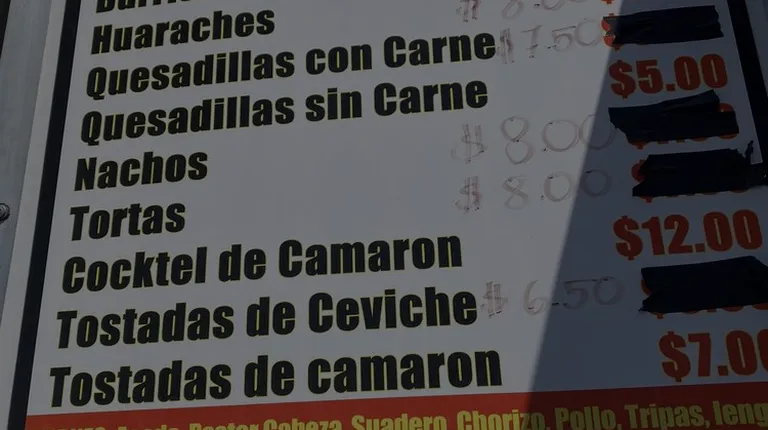 Huaraches $8.00
Quesadillas con Carne $7.50
Quesadillas sin Carne $5.00
Nachos $8.00
Tortas $8.00
Cocktel de Camaron $12.00
Tostadas de Ceviche $6.50
Tostadas de camaron $7.00
Pastor Cabeza, Suadero, Chorizo, Pollo, Tripas, leng